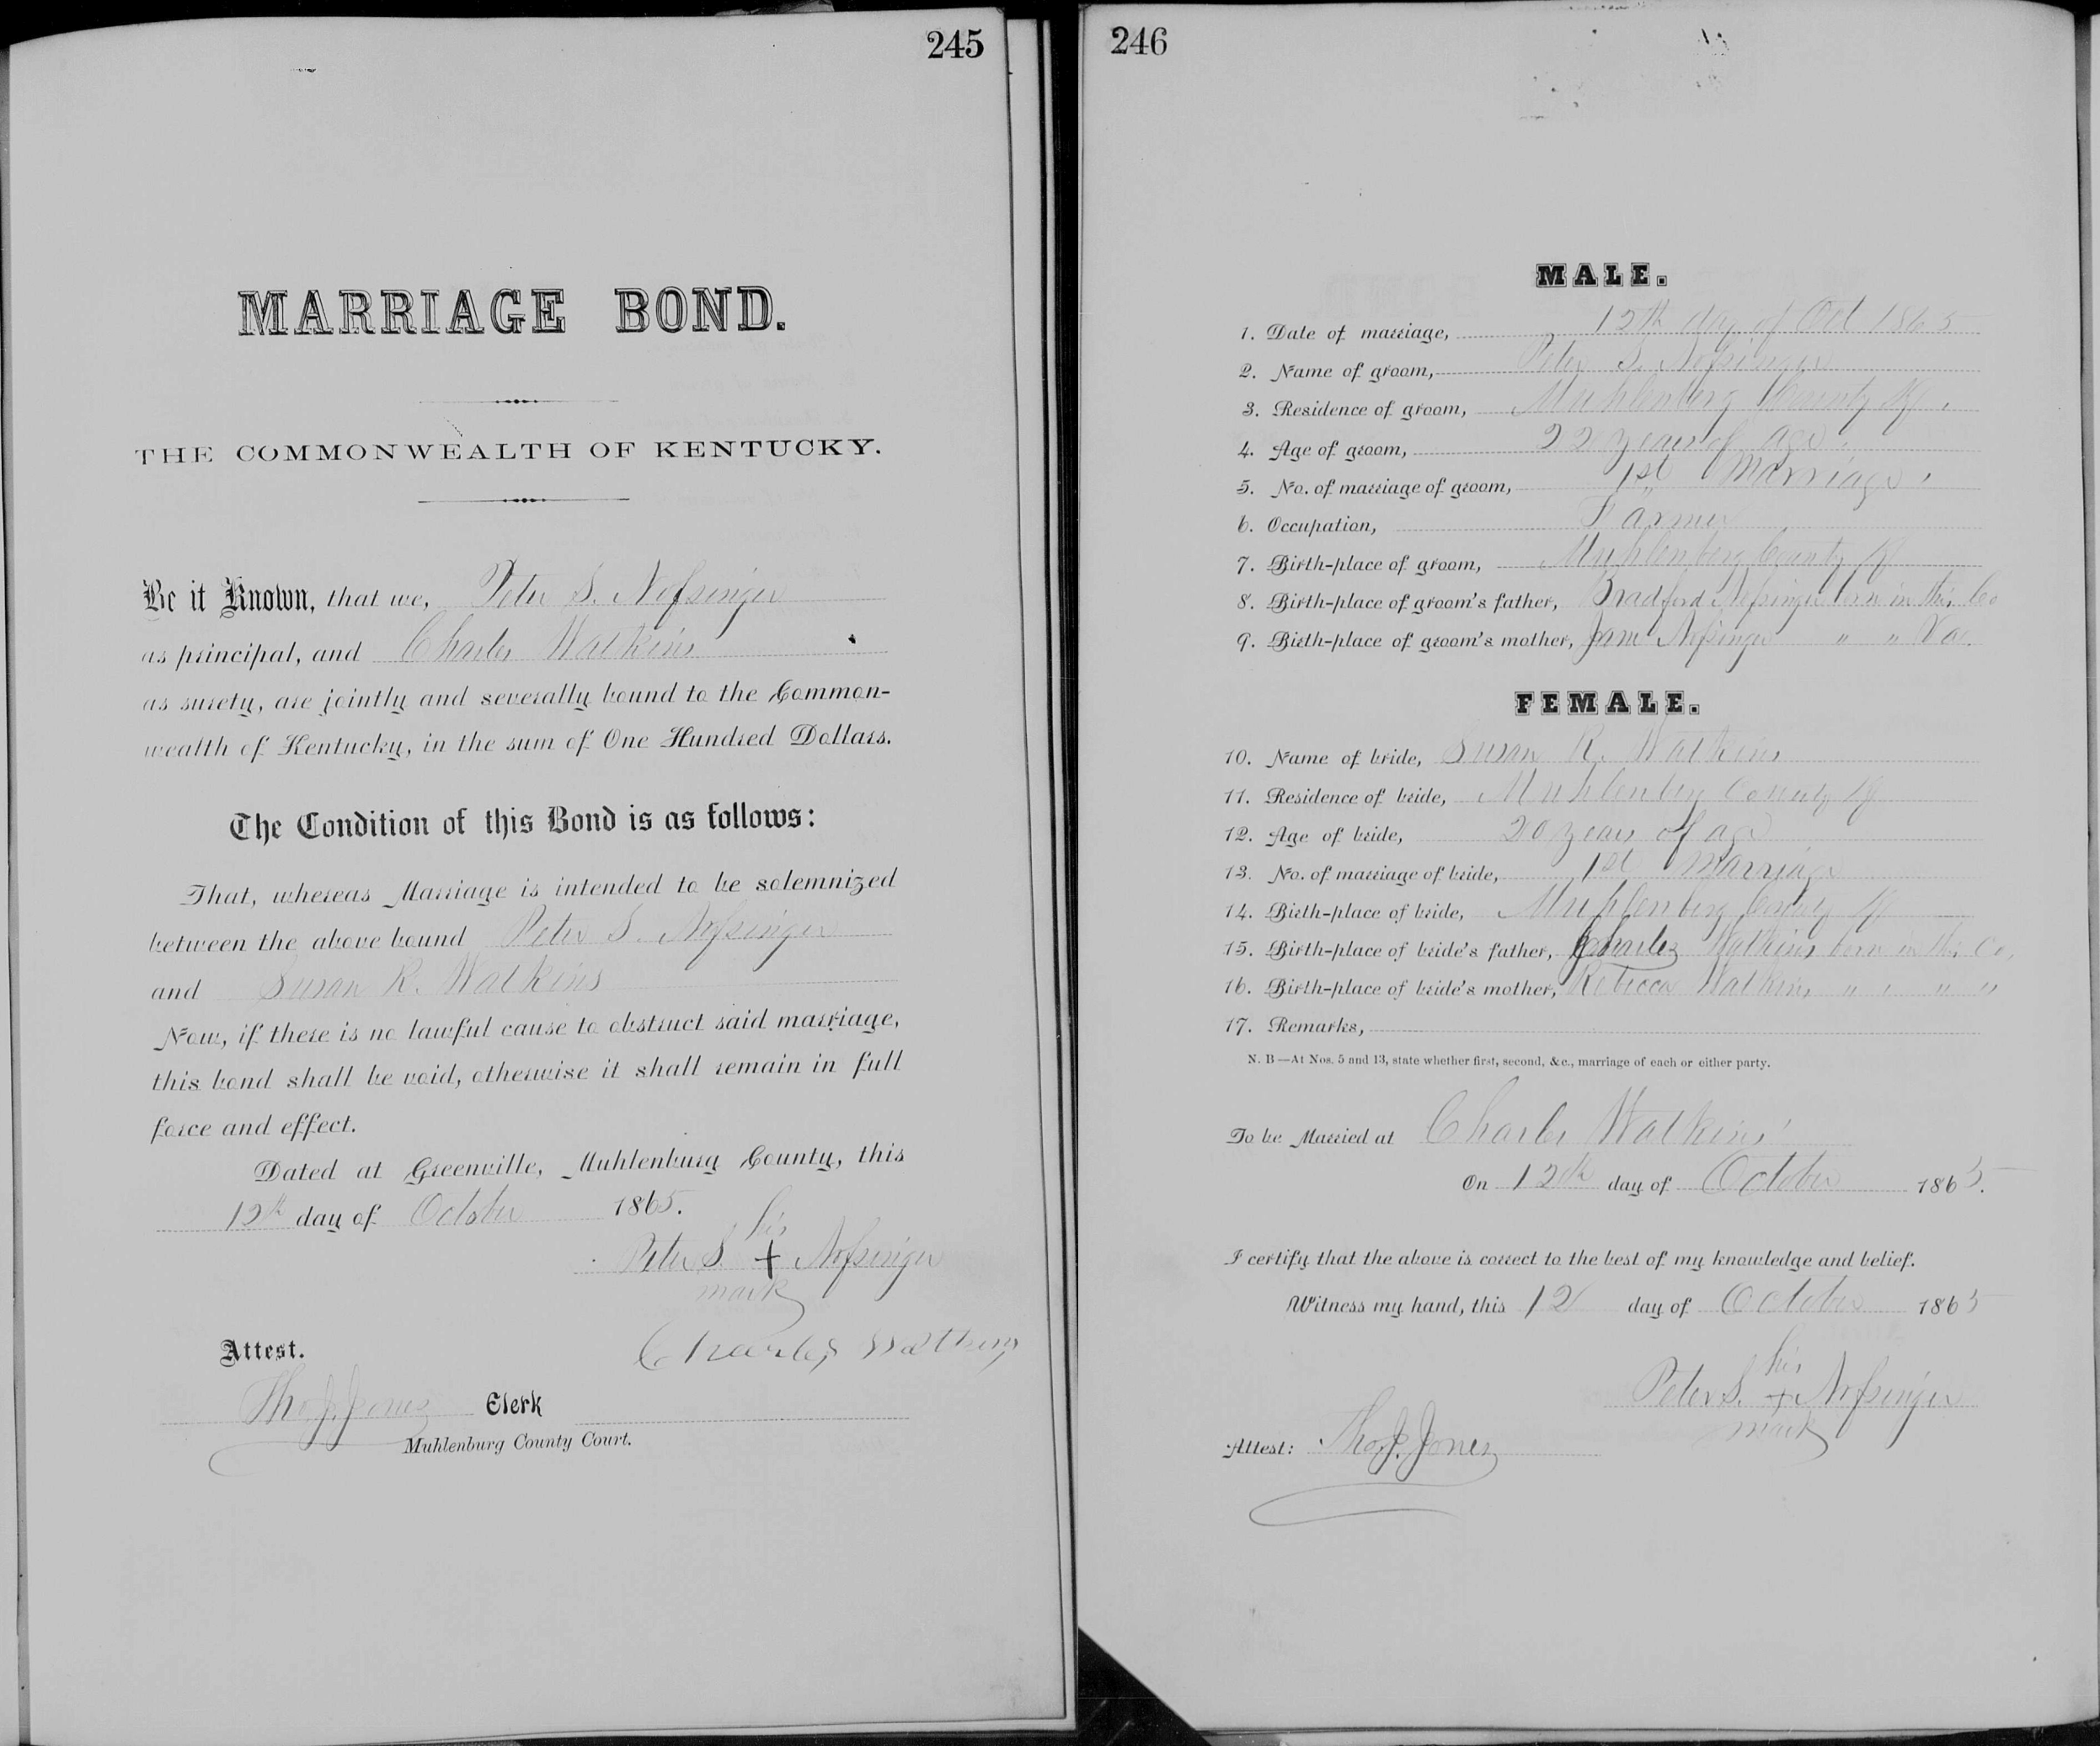 245
MARRIAGE BOND.
THE COMMONWEALTH OF KENTUCKY.
Be it Known, that we, Peter S. Nofsinger
as principal, and Charles Watkins
as surety, are jointly and severally bound to the Common-
wealth of Kentucky, in the sum of One Hundred Dollars.
The Condition of this Bond is as follows:
That, whereas Marriage is intended to be solemnized
between the above bound Peter S. Nofsinger
and Susan R. Watkins
Now, if there is no lawful cause to obstruct said marriage,
this bond shall be void, otherwise it shall remain in full
force and effect.
Dated at Greenville, Muhlenburg County, this
12th day of October 1865.
his
Peter S. + Nofsinger
mark
Charles Watkins
Attest.
Thos. J. Jones Clerk
Muhlenburg County Court.
246
MALE.
1. Date of marriage, 12th day of Oct 1865
2. Name of groom, Peter S. Nofsinger
3. Residence of groom, Muhlenberg County Ky.
4. Age of groom, 22 years of age.
5. No. of marriage of groom, 1st Marriage.
6. Occupation, Farmer
7. Birth-place of groom, Muhlenberg County Ky
8. Birth-place of groom's father, Bradford Nofsinger born in this Co
9. Birth-place of groom's mother, Jane Nofsinger " " Va.
FEMALE.
10. Name of bride, Susan R. Watkins
11. Residence of bride, Muhlenberg County Ky
12. Age of bride, 20 years of age
13. No. of marriage of bride, 1st Marriage
14. Birth-place of bride, Muhlenberg County Ky
15. Birth-place of bride's father, Charles Watkins born in this Co,
16. Birth-place of bride's mother, Rebecca Watkins " " " "
17. Remarks,
N. B—At Nos. 5 and 13, state whether first, second, &c., marriage of each or either party.
To be Married at Charles Watkins'
On 12th day of October 1865.
I certify that the above is correct to the best of my knowledge and belief.
Witness my hand, this 12 day of October 1865
his
Peter S. + Nofsinger
mark
Attest: Thos. J. Jones